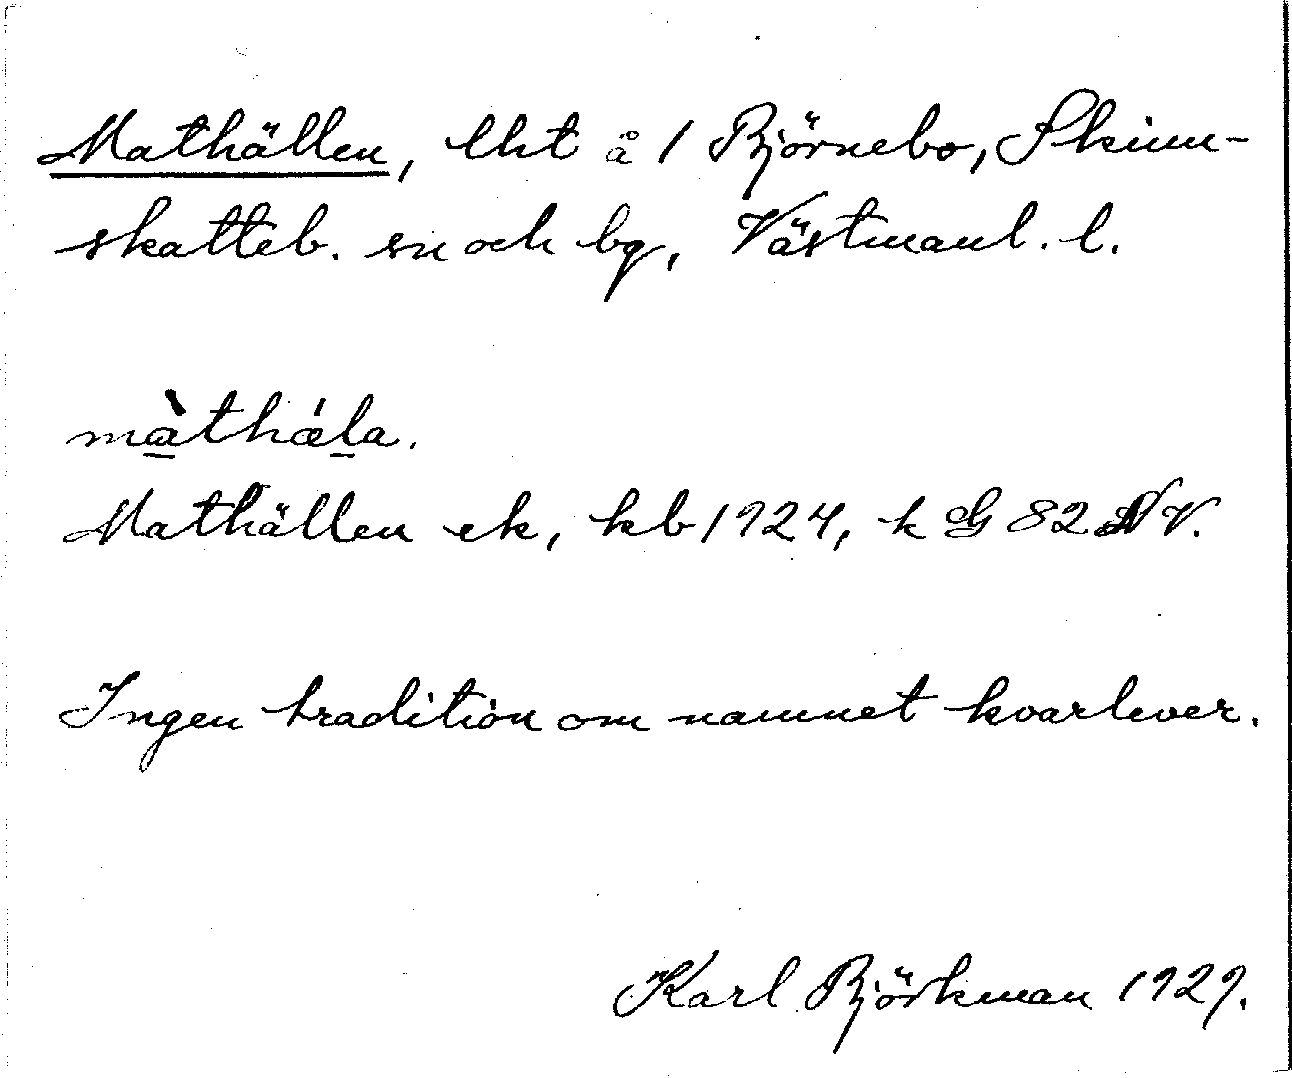 Mathällen, lht å 1 Björnebo, Skinn-
skatteb. sn och bg, Västmanl. l.
màthǽla.
Mathällen ek, kb 1924, k G 82 NV.
Ingen tradition om namnet kvarlever.
Karl Björkman 1929.